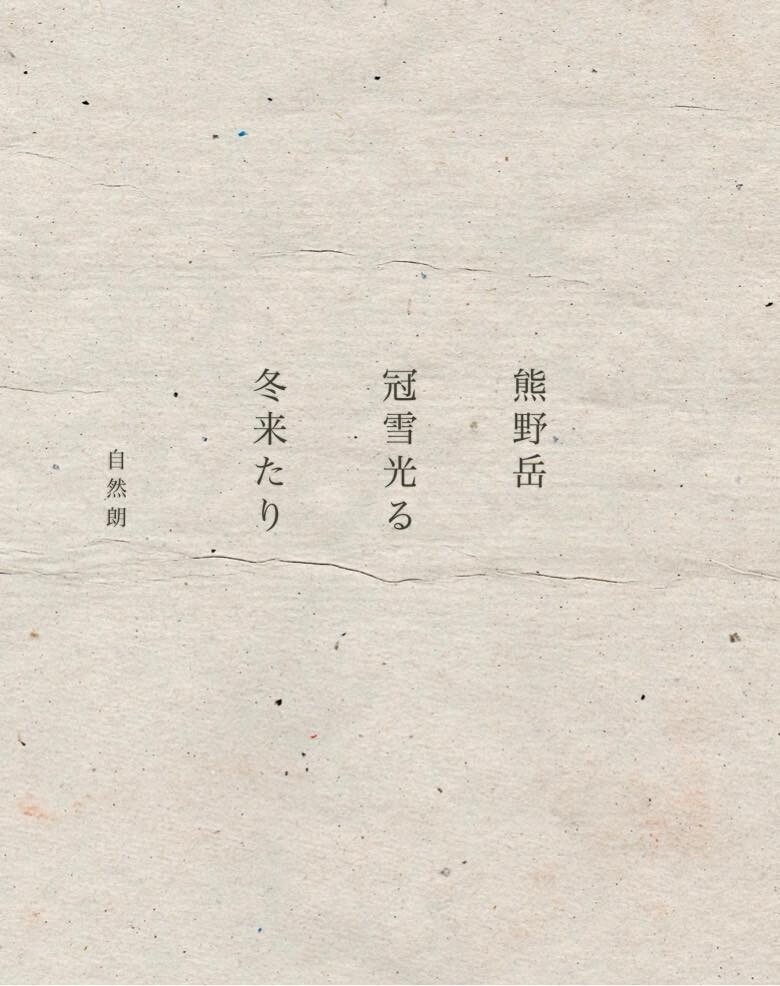 熊野岳
冠雪光る
冬来たり
自然朗